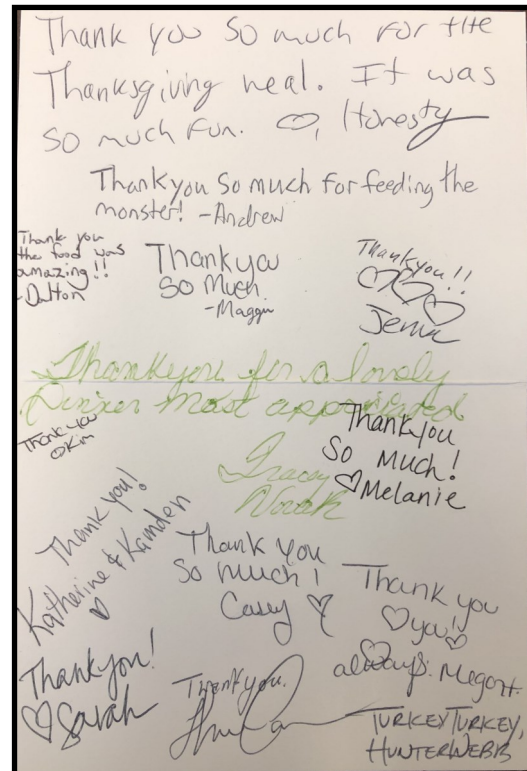 Thank you so much for the
Thanksgiving meal. It was
so much fun. ♡, Honesty
Thank you so much for feeding the
monster! -Andrew
Thank you
the food was
amazing!!
-Dalton
Thank you
so much.
-Maggie
Thank you!!
♡♡♡
Jenna
Thank you for a lovely
Dinner most
Tracey
Thank you
♡Kim
Thank you
So much!
♡Melanie
Thank you!
Katherine & Kamden
♡
Thank you
so much!
Casey ♡
Thank you
♡ you!!♡
always.
Thank you!
♡Sarah
Thank you.
TURKEY TURKEY,
HUNTER WEBB